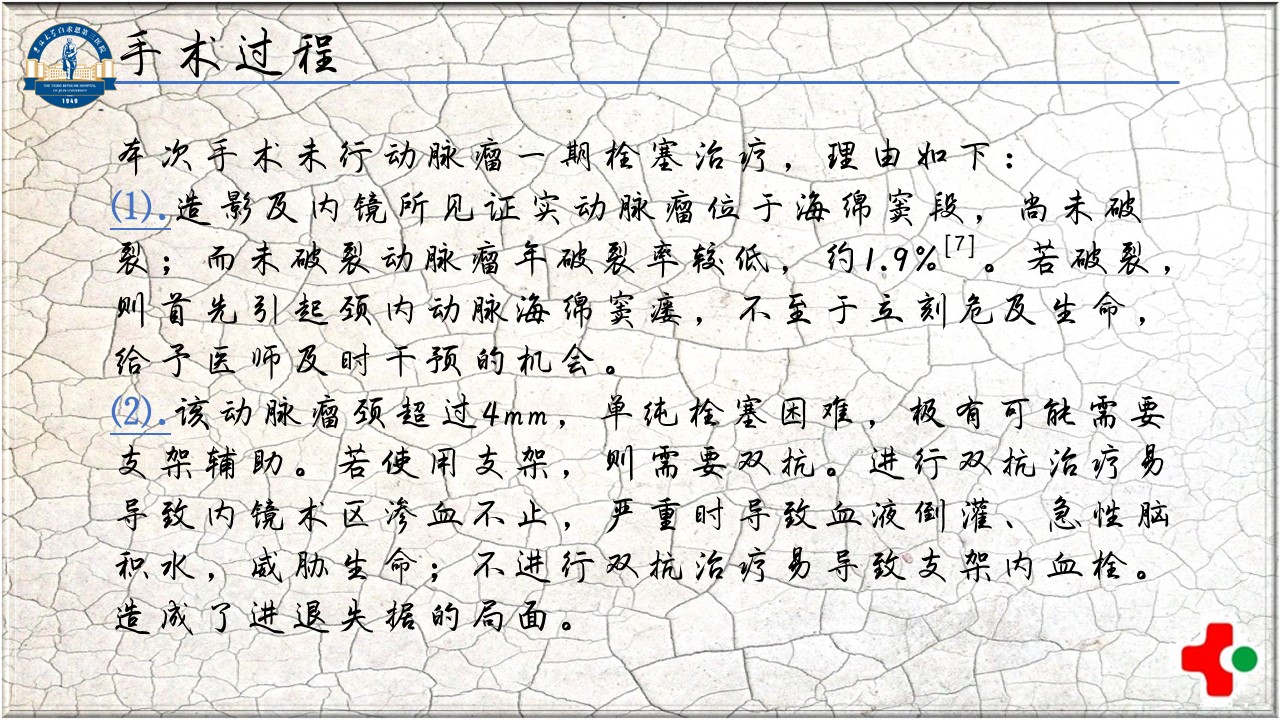 吉林大学白求恩第三医院
THE THIRD BETHUNE HOSPITAL
OF JILIN UNIVERSITY
1949
手术过程
本次手术未行动脉瘤一期栓塞治疗，理由如下：
(1).造影及内镜所见证实动脉瘤位于海绵窦段，尚未破
裂；而未破裂动脉瘤年破裂率较低，约1.9%[7]。若破裂，
则首先引起颈内动脉海绵窦瘘，不至于立刻危及生命，
给予医师及时干预的机会。
(2).该动脉瘤颈超过4mm，单纯栓塞困难，极有可能需要
支架辅助。若使用支架，则需要双抗。进行双抗治疗易
导致内镜术区渗血不止，严重时导致血液倒灌、急性脑
积水，威胁生命；不进行双抗治疗易导致支架内血栓。
造成了进退失据的局面。